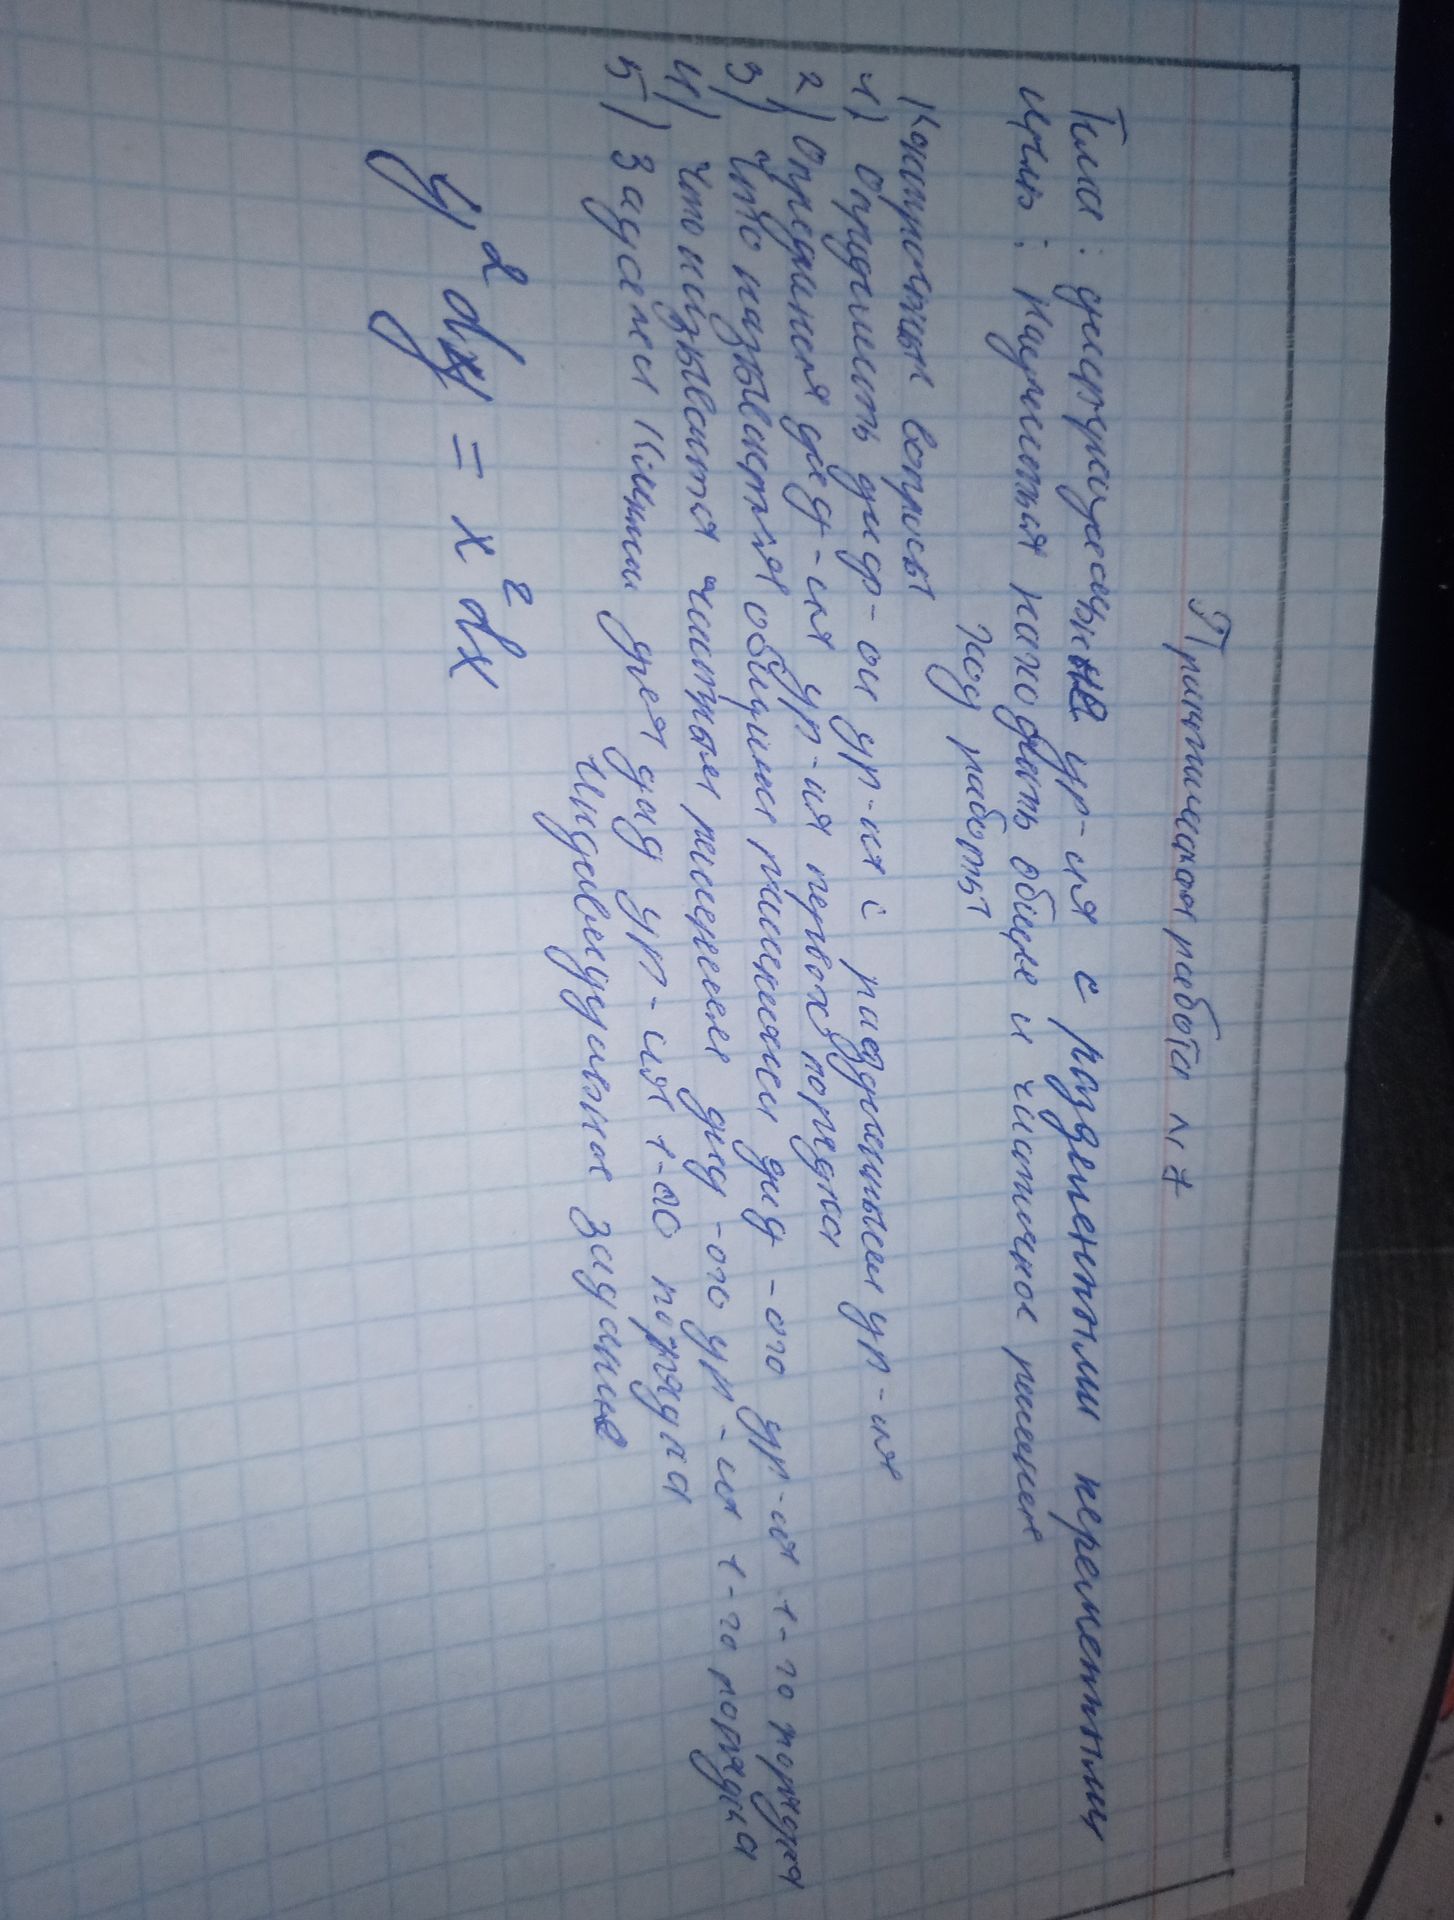 Практическая работа №7
Тема: дифференциальные ур-ия с разделенными переменными
Цель: Научиться находить общее и частное решение
Ход работы
Контрольные вопросы
1) Определить диф-ои ур-ия с разделенными ур-ия
2) Определения диф-ия ур-ия первох порядка
3) Что называется общими решениями диф-ого ур-ия 1-го порядка
4) Что называется частным решением диф-ого ур-ия 1-го порядка
5) Задачи Коши для диф ур-ия 1-ого порядка
Индивидуальное задание
y² dy = x² dx